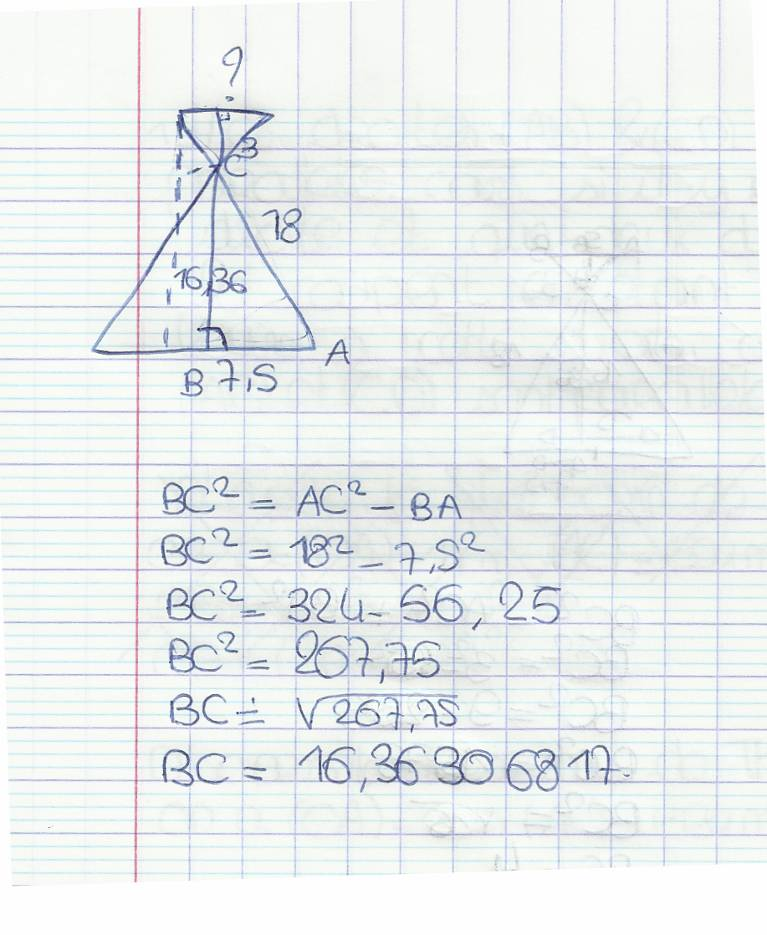 ?
3
C
18
16,36
B 7,5 A
BC² = AC² - BA
BC² = 18² - 7,5²
BC² = 324 - 56,25
BC² = 267,75
BC = √267,75
BC = 16,36306817